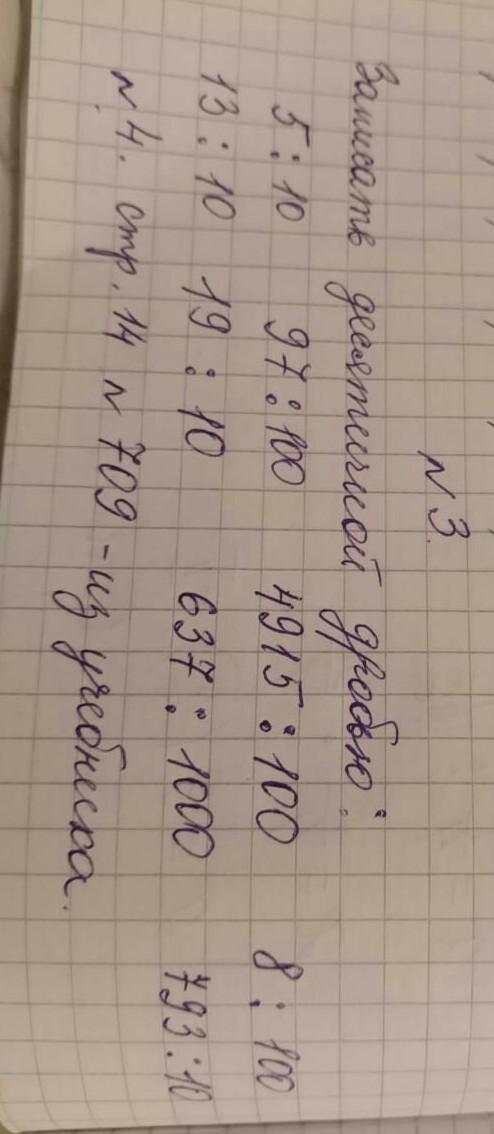 N 3.
Записать десятичной дробью:
5 : 10 97 : 100 4915 : 100 8 : 100
13 : 10 19 : 10 637 : 1000 793 : 10
N 4. стр. 14 N 709 - из учебника.